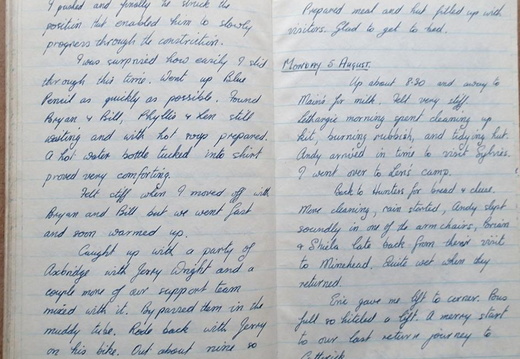 I pulled and finally he struck the
position that enabled him to slowly
progress through the constriction.
I was surprised how easily I slid
through this time. Went up Blue
Pencil as quickly as possible. Found
Bryan & Bill, Phyllis & Ken still
waiting and with hot soup prepared.
A hot water bottle tucked into shirt
proved very comforting.
Felt stiff when I moved off with
Bryan and Bill but we went fast
and soon warmed up.
Caught up with a party of
Axbridge with Jerry Wright and a
couple more of our support team
mixed with it. By passed them in the
muddy tube. Rode back with Jerry
on his bike. Out about nine so
Prepared meal and hut filled up with
visitors. Glad to get to bed.
Monday 5 August.
Up about 8.30 and away to
Mains for milk. Felt very stiff.
Lethargic morning spent cleaning up
kit, burning rubbish, and tidying hut.
Andy arrived in time to visit
I went over to Len's camp.
Back to Hunters for bread & cheese.
More cleaning, rain started, Andy slept
soundly in one of the arm chairs, Brian
& Sheila late back from their visit
to Minehead. Quite wet when they
returned.
Eric gave me lift to corner. Bus
full so hitched a lift. A merry start
to our last return journey to
Catterick